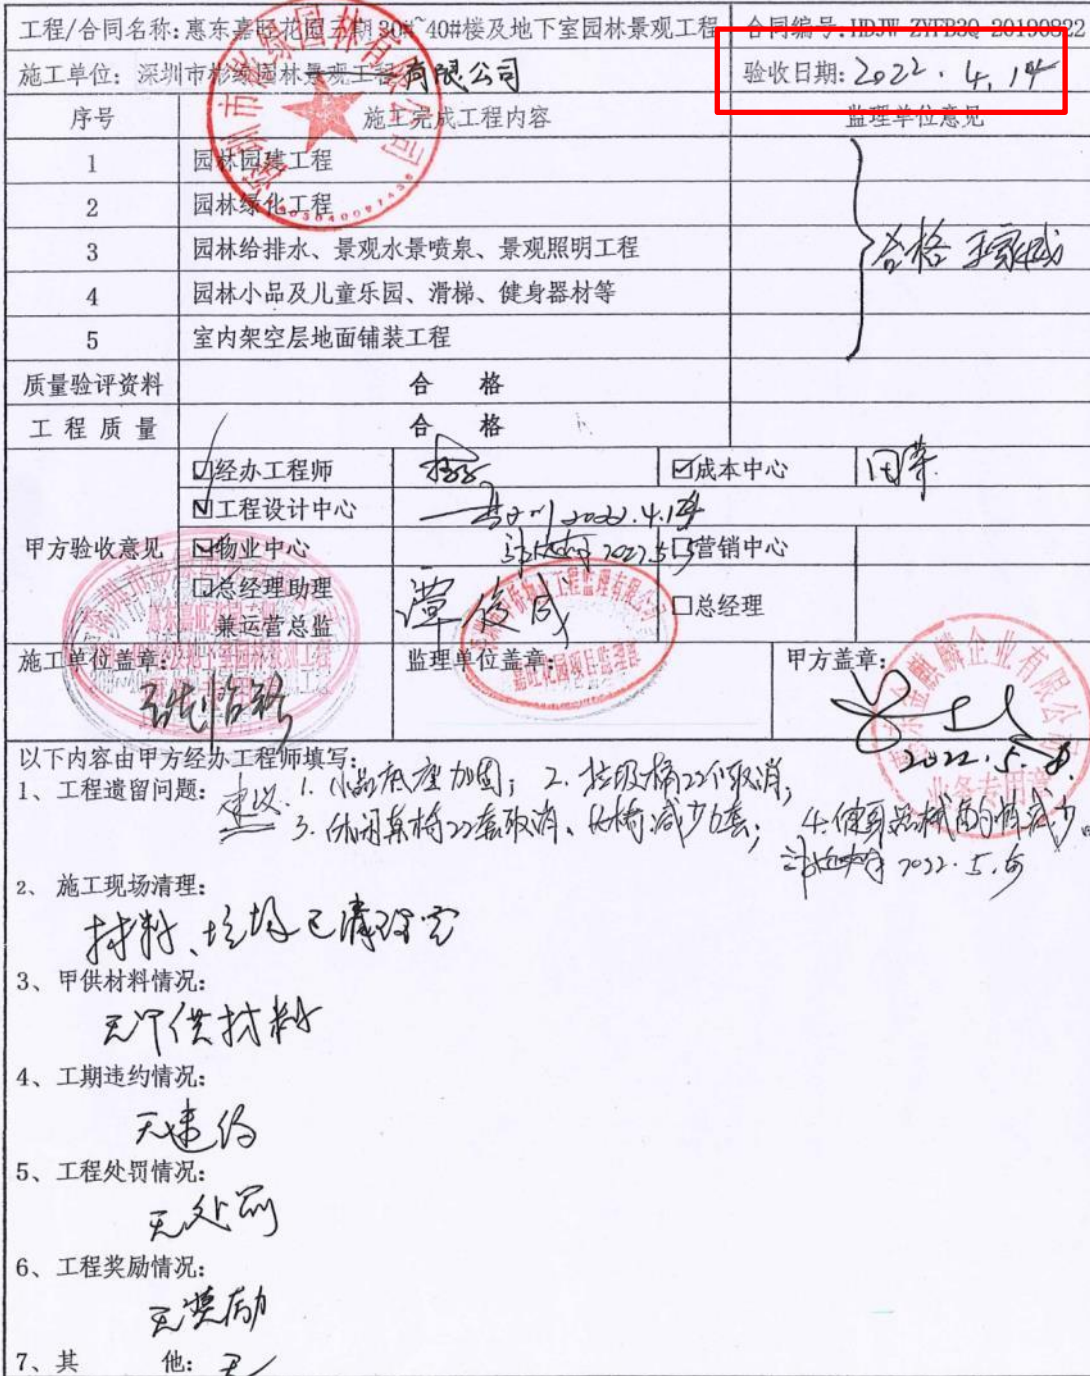 工程/合同名称:惠东嘉旺花园三期30#~40#楼及地下室园林景观工程 合同编号:HDJW-ZYFB3Q-20190822
施工单位: 深圳市彬绿园林景观工程有限公司 验收日期: 2022. 4. 14
序号 施工完成工程内容 监理单位意见
1 园林园建工程
2 园林绿化工程
3 园林给排水、景观水景喷泉、景观照明工程
合格
4 园林小品及儿童乐园、滑梯、健身器材等
5 室内架空层地面铺装工程
质量验评资料 合 格
工 程 质 量 合 格
☑经办工程师 ☑成本中心
☑工程设计中心 2022.4.14
甲方验收意见 ☑物业中心 2022.5.5 □营销中心
☑总经理助理 谭俊成
兼运营总监 □总经理
施工单位盖章: 监理单位盖章: 甲方盖章:
嘉旺花园项目监理部
业务专用章
2022.5.8.
以下内容由甲方经办工程师填写:
1、工程遗留问题: 建议: 1. 小品底座加固; 2. 垃圾桶22个取消;
3. 休闲桌椅22套取消、 减少6套; 4. 健身器械 减少。
2022.5.5
2、 施工现场清理:
材料、垃圾已清理完
3、甲供材料情况:
无甲供材料
4、工期违约情况:
无违约
5、工程处罚情况:
无处罚
6、工程奖励情况:
无奖励
7、其 他: 无